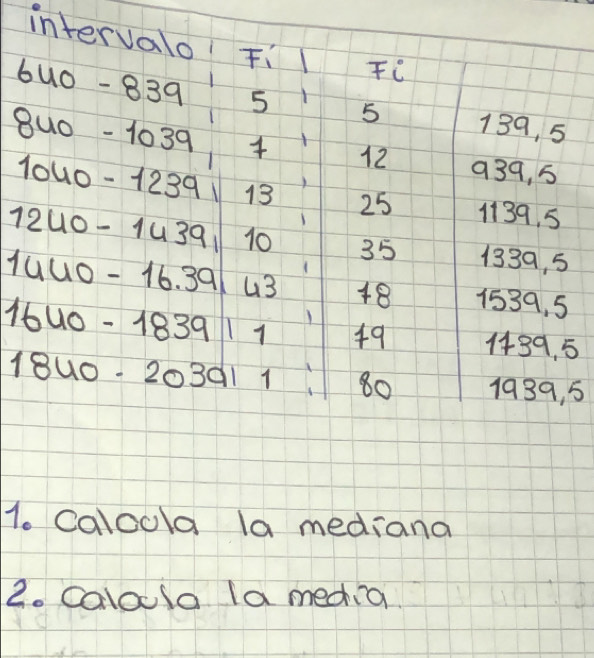 intervalo Fi Fi
640 - 839 5 5 739,5
840 - 1039 7 12 939,5
1040 - 1239 13 25 1139,5
1240 - 1439 10 35 1339,5
1440 - 16.39 43 78 1539,5
1640 - 1839 1 79 1739,5
1840 - 2039 1 80 1939,5
1. Calcula la mediana
2. Calcula la media